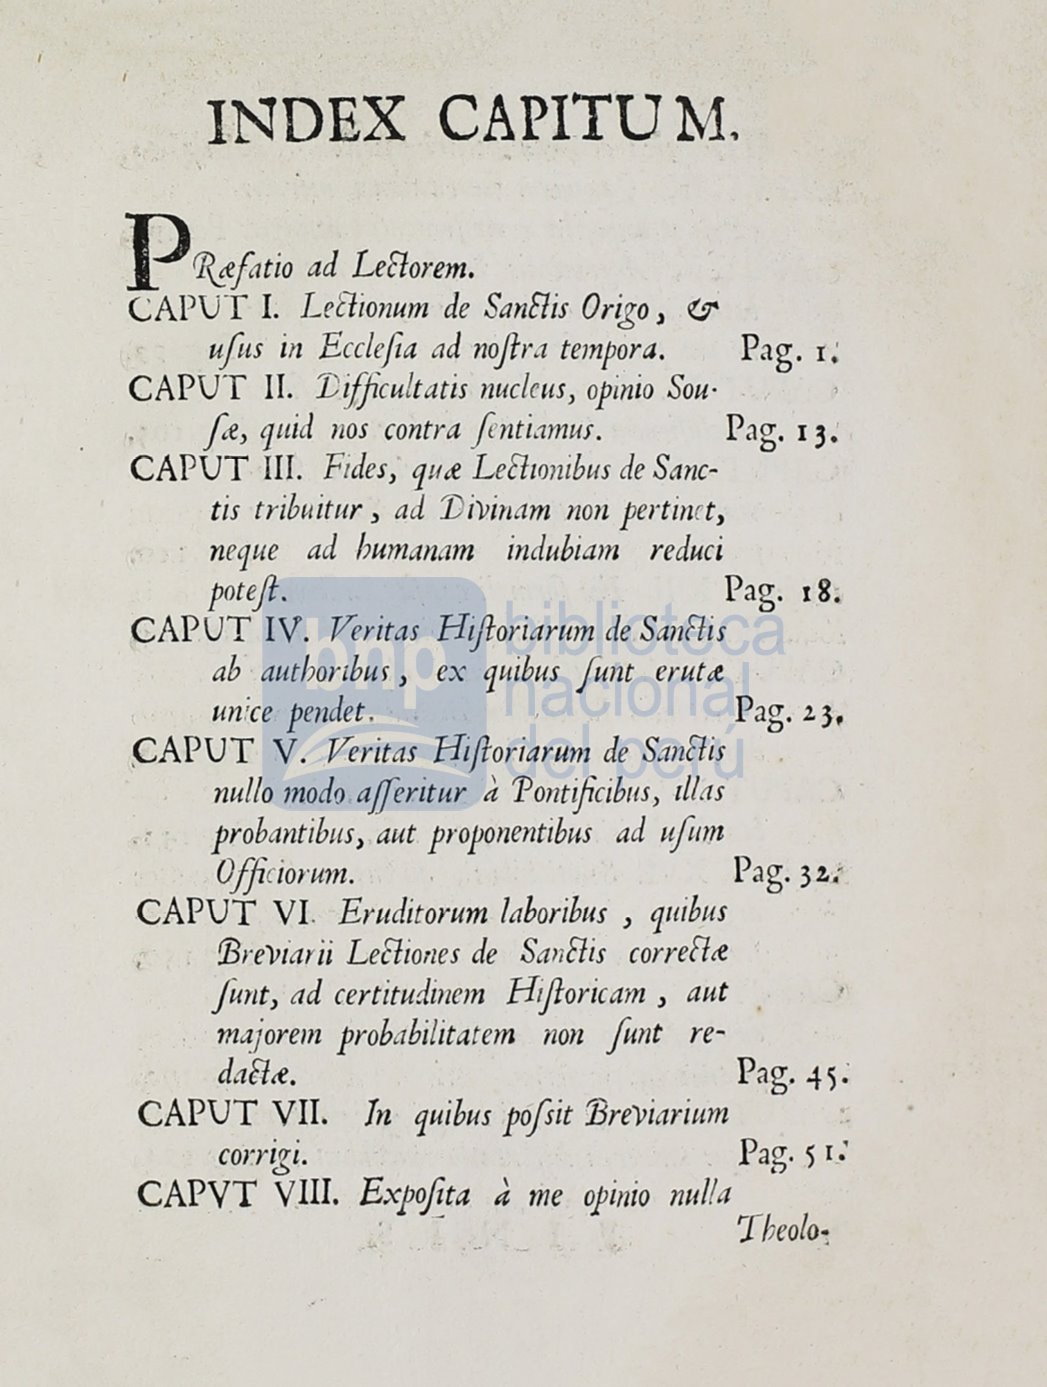 INDEX CAPITUM.
PRæfatio ad Lectorem.
CAPUT I. Lectionum de Sanctis Origo, &
uſus in Eccleſia ad noſtra tempora. Pag. 1.
CAPUT II. Difficultatis nucleus, opinio Sou-
ſæ, quid nos contra ſentiamus. Pag. 13.
CAPUT III. Fides, quæ Lectionibus de Sanc-
tis tribuitur, ad Divinam non pertinet,
neque ad humanam indubiam reduci
poteſt. Pag. 18.
CAPUT IV. Veritas Hiſtoriarum de Sanctis
ab authoribus, ex quibus ſunt erutæ
unice pendet. Pag. 23.
CAPUT V. Veritas Hiſtoriarum de Sanctis
nullo modo aſſeritur à Pontificibus, illas
probantibus, aut proponentibus ad uſum
Officiorum. Pag. 32.
CAPUT VI. Eruditorum laboribus, quibus
Breviarii Lectiones de Sanctis correctæ
ſunt, ad certitudinem Hiſtoricam, aut
majorem probabilitatem non ſunt re-
dactæ. Pag. 45.
CAPUT VII. In quibus poſsit Breviarium
corrigi. Pag. 51.
CAPVT VIII. Expoſita à me opinio nulla
Theolo-
bnp biblioteca
nacional
del perú